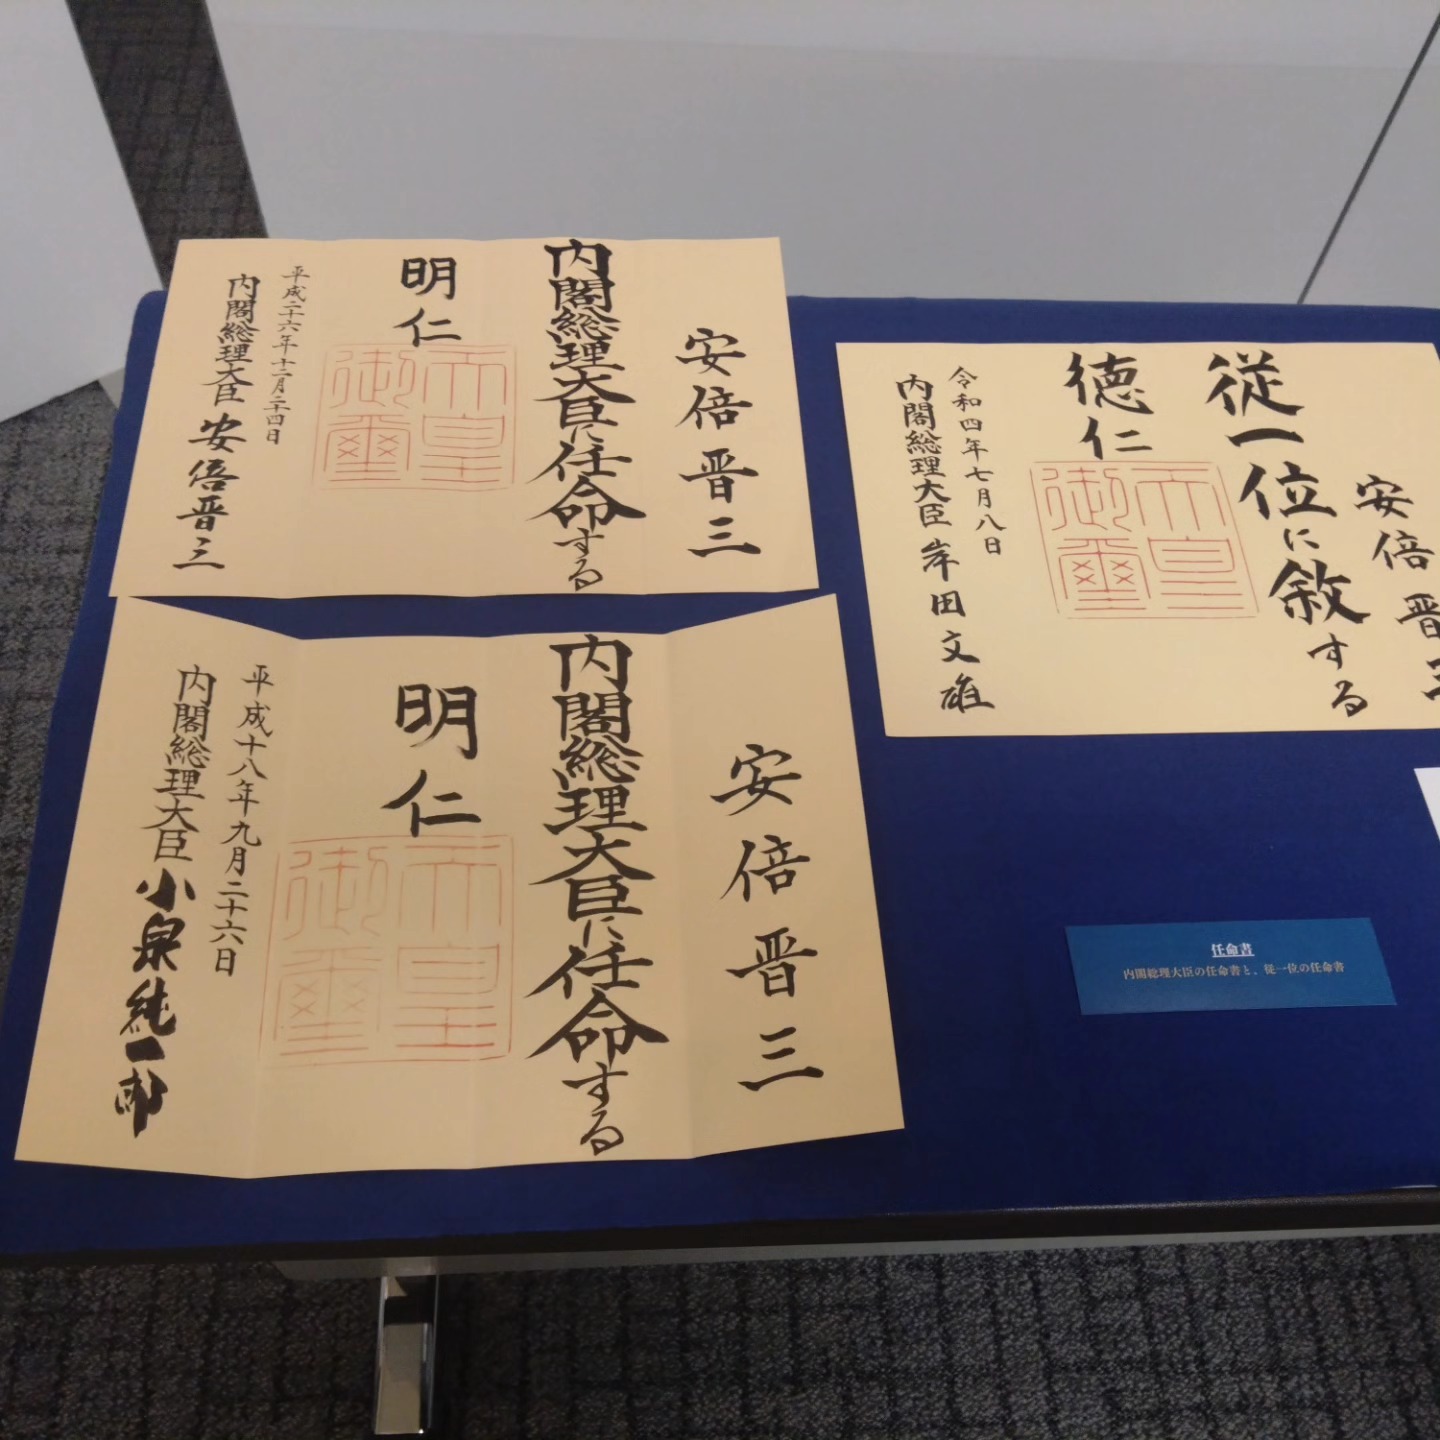 安倍晋三
内閣総理大臣に任命する
明仁
天皇御璽
平成二十六年十二月二十四日
内閣総理大臣 安倍晋三
安倍晋三
内閣総理大臣に任命する
明仁
天皇御璽
平成十八年九月二十六日
内閣総理大臣 小泉純一郎
安倍晋三
従一位に敘する
徳仁
天皇御璽
令和四年七月八日
内閣総理大臣 岸田文雄
任命書
内閣総理大臣の任命書と、従一位の任命書